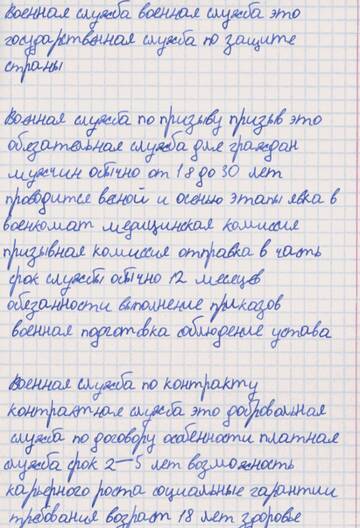 Военная служба военная служба это
государственная служба по защите
страны
Военная служба по призыву призыв это
обязательная служба для граждан
мужчин обычно от 18 до 30 лет
проводится весной и осенью этапы явка в
военкомат медицинская комиссия
призывная комиссия отправка в часть
срок службы обычно 12 месяцев
обезанности выполнение приказов
военная подготовка соблюдение устава
Военная служба по контракту
контрактная служба это добровольная
служба по договору особенности платная
служба срок 2-5 лет возможность
карьерного роста социальные гарантии
требования возраст 18 лет здоровье